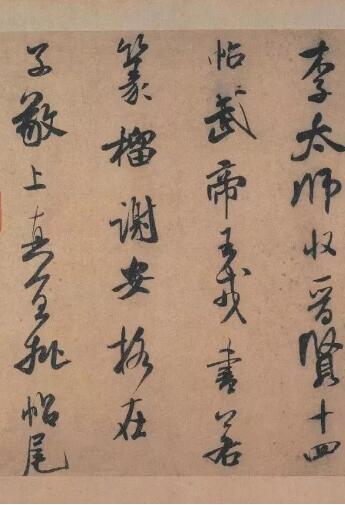 李太师收晋贤十四
帖武帝王戎书若
篆榴谢安格在
子敬上真宜批帖尾